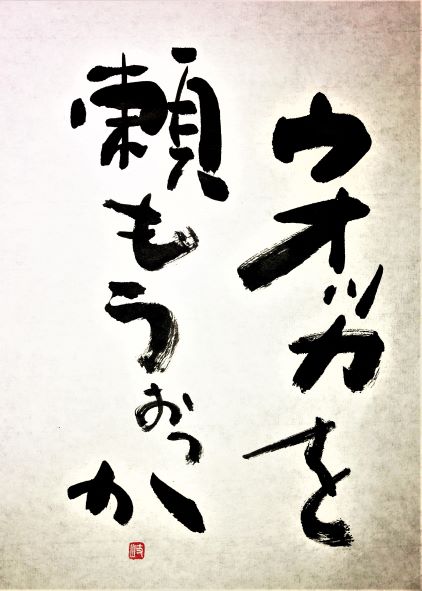 ウオッカを
頼もうおっか